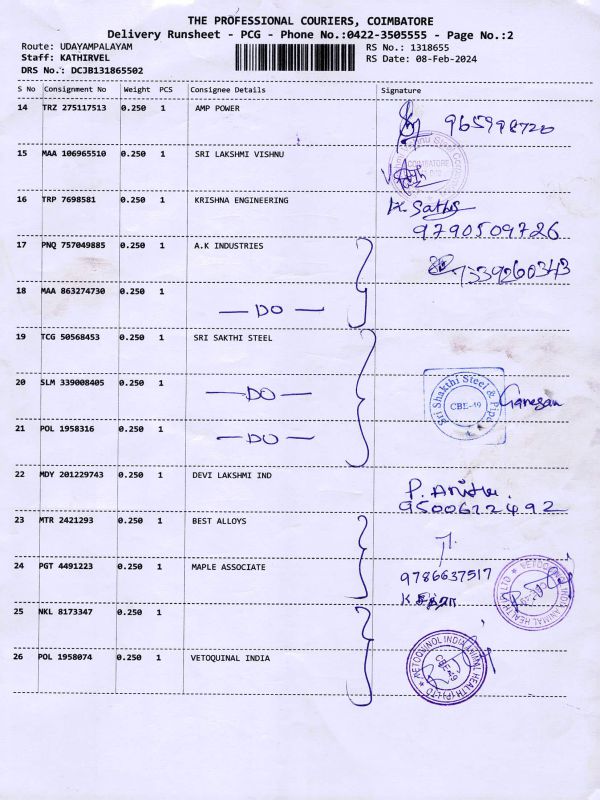 THE PROFESSIONAL COURIERS, COIMBATORE
Delivery Runsheet - PCG - Phone No.:0422-3505555 - Page No.:2
Route: UDAYAMPALAYAM RS No.: 1318655
Staff: KATHIRVEL RS Date: 08-Feb-2024
DRS No.: DCJB131865502
S No Consignment No Weight PCS Consignee Details Signature
14 TRZ 275117513 0.250 1 AMP POWER
15 MAA 106965510 0.250 1 SRI LAKSHMI VISHNU
COIMBATORE
16 TRP 7698581 0.250 1 KRISHNA ENGINEERING K. Sathis
9790509726
17 PNQ 757049885 0.250 1 A.K INDUSTRIES
7339260343
18 MAA 863274730 0.250 1
— DO —
19 TCG 50568453 0.250 1 SRI SAKTHI STEEL
20 SLM 339008405 0.250 1 — DO — Sri Shakthi Steel & Pipe CBE-49 Ganesan
21 POL 1958316 0.250 1 — DO —
22 MDY 201229743 0.250 1 DEVI LAKSHMI IND
P. Anitha.
9500612492
23 MTR 2421293 0.250 1 BEST ALLOYS
24 PGT 4491223 0.250 1 MAPLE ASSOCIATE 9786637517
VETOQUINOL INDIA ANIMAL HEALTH (P) LTD
25 NKL 8173347 0.250 1
26 POL 1958074 0.250 1 VETOQUINAL INDIA VETOQUINOL INDIA ANIMAL HEALTH (P) LTD CBE-49